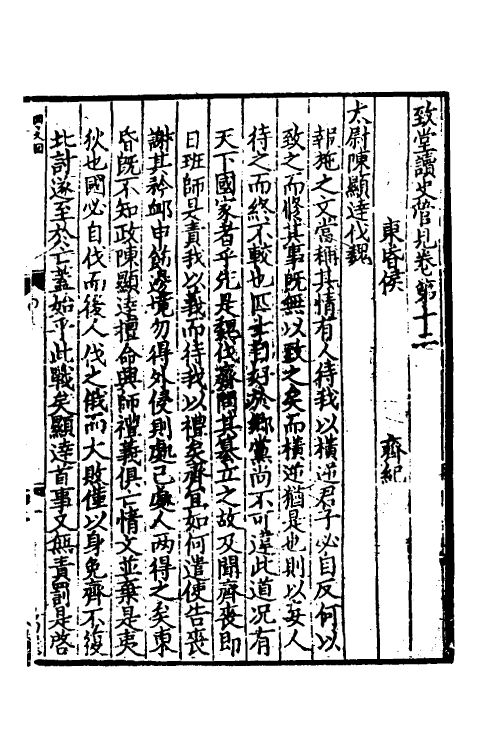 致堂讀史管見卷第十二
東昏侯 齊紀
太尉陳顯達伐魏
報施之文當稱其情有人待我以橫逆君子必自反何以
致之而修其事既無以致之矣而橫逆猶是也則以妄人
待之而終不較也匹士自好處鄉黨尚不可違此道況有
天下國家者乎先是魏伐齊問其簒立之故及聞齊喪即
日班師是責我以義而待我以禮矣齊宜如何遣使告喪
謝其矜邺申飭邊境勿得外侵則處己處人兩得之矣東
昏既不知政陳顯達擅命興師禮義俱亡情文並棄是夷
狄也國必自伐而後人伐之俄而大敗僅以身免齊不復
北討逐至於亡蓋始乎此戰矣顯達首事又無責罰是啓